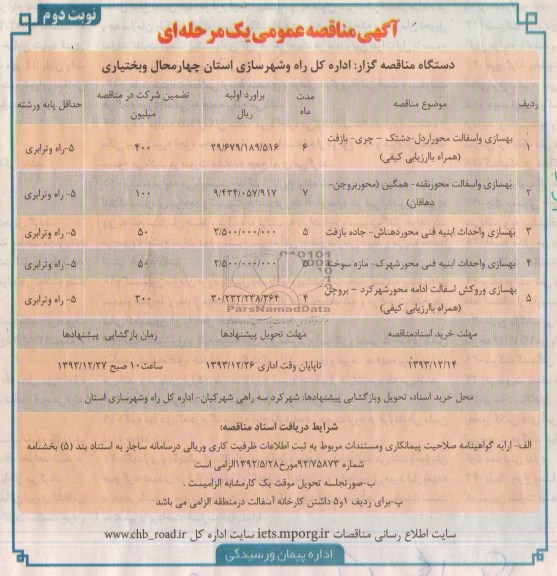 نوبت دوم
آگهی مناقصه عمومی یک مرحله ای
دستگاه مناقصه گزار: اداره کل راه وشهرسازی استان چهارمحال وبختیاری
ردیف موضوع مناقصه مدت ماه براورد اولیه ریال تضمین شرکت در مناقصه میلیون حداقل پایه ورشته
۱ بهسازی واسفالت محوراردل-دشتک - چری- بازفت (همراه باارزیابی کیفی) ۶ ۲۹/۶۷۹/۱۸۹/۵۱۶ ۴۰۰ ۵-راه وترابری
۲ بهسازی واسفالت محورنقنه- همگین (محوربروجن- دهاقان) ۷ ۹/۴۳۴/۰۵۷/۹۱۷ ۱۰۰ ۵- راه وترابری
۳ بهسازی واحداث ابنیه فنی محوردهناش- جاده بازفت ۵ ۲/۵۰۰/۰۰۰/۰۰۰ ۵۰ ۵- راه وترابری
۴ بهسازی واحداث ابنیه فنی محورشهرک- مازه سوخته ۵ ۲/۵۰۰/۰۰۰/۰۰۰ ۵۰ ۵- راه وترابری
۵ بهسازی وروکش اسفالت ادامه محورشهرکرد - بروجن (همراه باارزیابی کیفی) ۴ ۳۰/۲۳۲/۲۳۸/۳۶۴ ۳۰۰ ۵- راه وترابری
ParsNamadData
مهلت خرید اسنادمناقصه مهلت تحویل پیشنهادها زمان بازگشایی پیشنهادها
۱۳۹۳/۱۲/۱۴ تاپایان وقت اداری ۱۳۹۳/۱۲/۲۶ ساعت۱۰ صبح ۱۳۹۳/۱۲/۲۷
محل خرید اسناد، تحویل وبازگشایی پیشنهادها: شهرکرد سه راهی شهرکیان- اداره کل راه وشهرسازی استان
شرایط دریافت اسناد مناقصه:
الف- ارایه گواهینامه صلاحیت پیمانکاری ومستندات مربوط به ثبت اطلاعات ظرفیت کاری وریالی درسامانه ساجار به استناد بند (۵) بخشنامه
شماره ۹۲/۷۵۸۷۳مورخ۱۳۹۲/۵/۲۸الزامی است
ب-صورتجلسه تحویل موقت یک کارمشابه الزامیست .
پ-برای ردیف ۱و۵ داشتن کارخانه آسفالت درمنطقه الزامی می باشد
سایت اطلاع رسانی مناقصات iets.mporg.ir سایت اداره کل www.chb_road.ir
اداره پیمان ورسیدگی